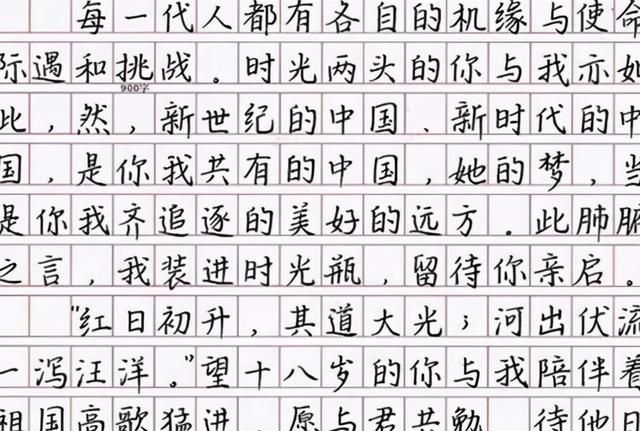 每一代人都有各自的机缘与使命
际遇和挑战。时光两头的你与我亦如
900字
此，然，新世纪的中国、新时代的中
国，是你我共有的中国，她的梦，当
是你我齐追逐的美好的远方．此肺腑
之言，我装进时光瓶，留待你亲启。
"红日初升，其道大光；河出伏流
一泻汪洋。"望十八岁的你与我陪伴着
祖国高歌猛进，愿与君共勉 待他日